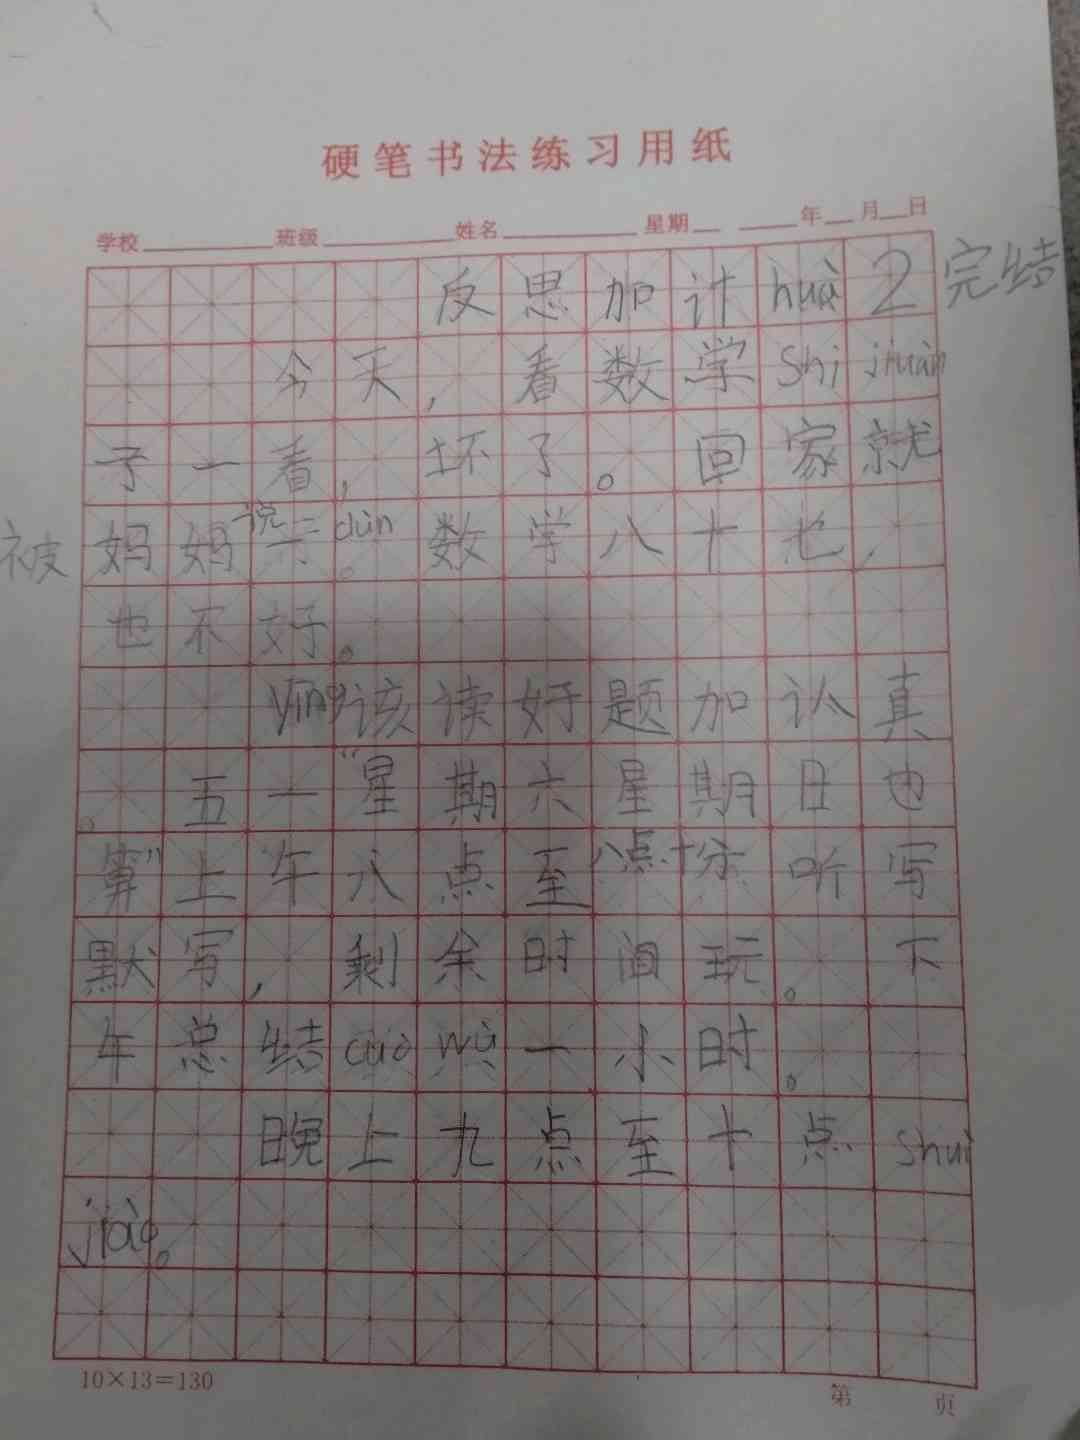 硬笔书法练习用纸
学校 班级 姓名 星期 年 月 日
反思加计huà2完结
今天，看数学shì juàn
子一看，坏了。回家就
被妈妈说一dùn。数学八十七，
也不好。
yīng该读好题加认真
。五一“星期六星期日也
算”上午八点至八点十分听写
默写，剩余时间玩。下
午总结cuò wù一小时。
晚上九点至十点shuì
jiào。
10×13=130
第 页